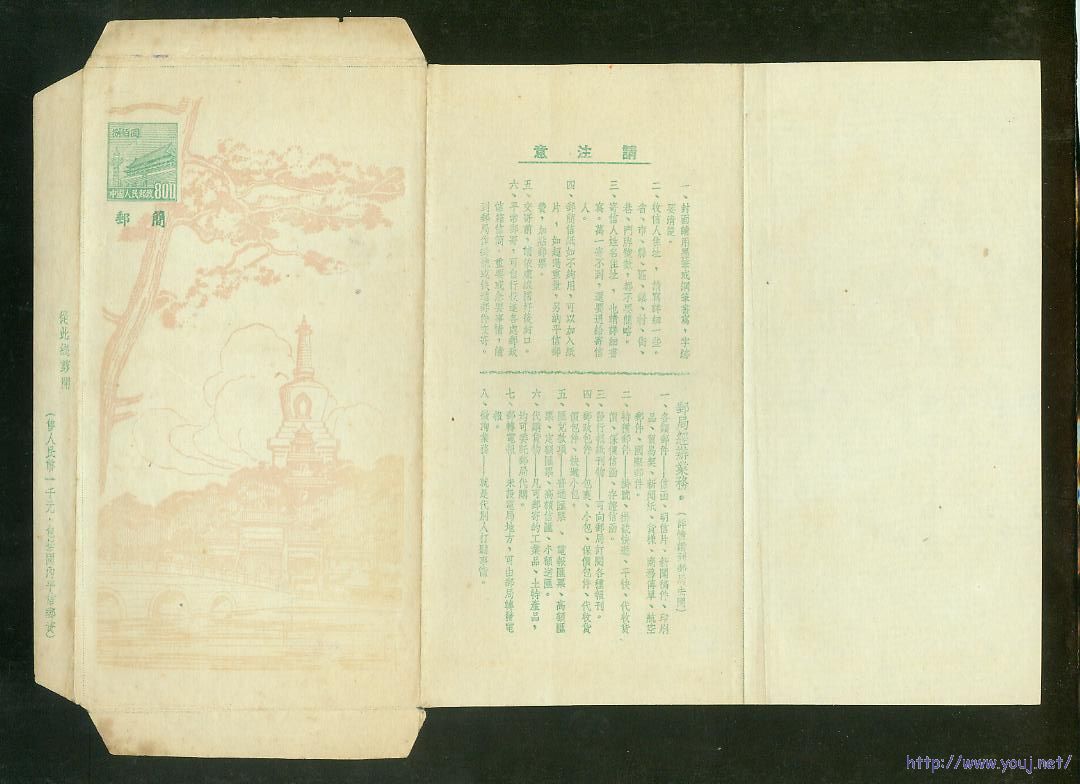 捌佰圓
中國人民郵政 800
郵簡
從此綫撕開
(售人民幣一千元,包括國內平信郵資)
請注意
一、封面請用墨筆或鋼筆書寫,字跡
要清楚。
二、收信人住址,請寫詳細一些。
省、市、縣、區、鎮、村、街、
巷、門牌號數,都不要簡略。
三、寄信人姓名住址,也請詳細書
寫。萬一寄不到,還要退給寄信
人。
四、郵簡信紙如不夠用,可以加入紙
片,如超過重量,另納平信郵
費,加貼郵票。
五、交寄前,請依虛綫摺好後封口。
六、平常郵寄,可自行投送各處郵政
信箱信筒。重要或急要事情,請
到郵局作掛號或快遞郵件交寄。
郵局經辦業務。(詳情請詢郵局查閱)
一、各類郵件——信函、明信片、新聞稿件、印刷
品、貿易契、新聞紙、貨樣、商務傳單、航空
郵件、國際郵件。
二、特種郵件——掛號、掛號快遞、平快、代收貨
價、保價信函、存證信函。
三、發行報紙刊物——可向郵局訂閱各種報刊。
四、郵政包件——包裹、小包、保價包件、代收貨
價包件、快遞小包。
五、匯兌款項——普通匯票、電報匯票、高額匯
票、定額匯票、高額信匯、小額送匯。
六、代購貨物——凡可郵寄的工業品、土特產品,
均可委託郵局代購。
七、郵轉電報——未設電局地方,可由郵局轉發電
報。
八、諮詢業務——就是代別人打聽事情。
http://www.youj.net/